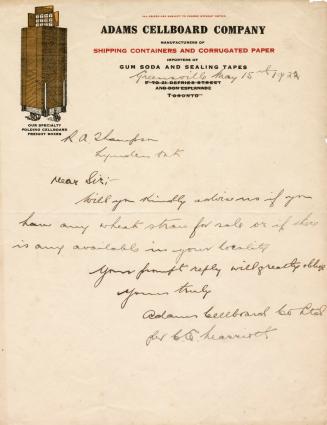 ALL PRICES ARE SUBJECT TO CHANGE WITHOUT NOTICE
ADAMS CELLBOARD COMPANY
MANUFACTURERS OF
SHIPPING CONTAINERS AND CORRUGATED PAPER
IMPORTERS OF
GUM SODA AND SEALING TAPES
Greensville May 15th 1922
9 TO 21 DEFRIES STREET
AND DON ESPLANADE
TORONTO
OUR SPECIALTY
FOLDING CELLBOARD
FREIGHT BOXES
R A Thompson
Lynden Ont
Dear Sir;
Will you kindly advise us if you
have any wheat straw for sale or if there
is any available in your locality
Your prompt reply will greatly oblige
Yours truly
Adams Cellboard Co Ltd
per